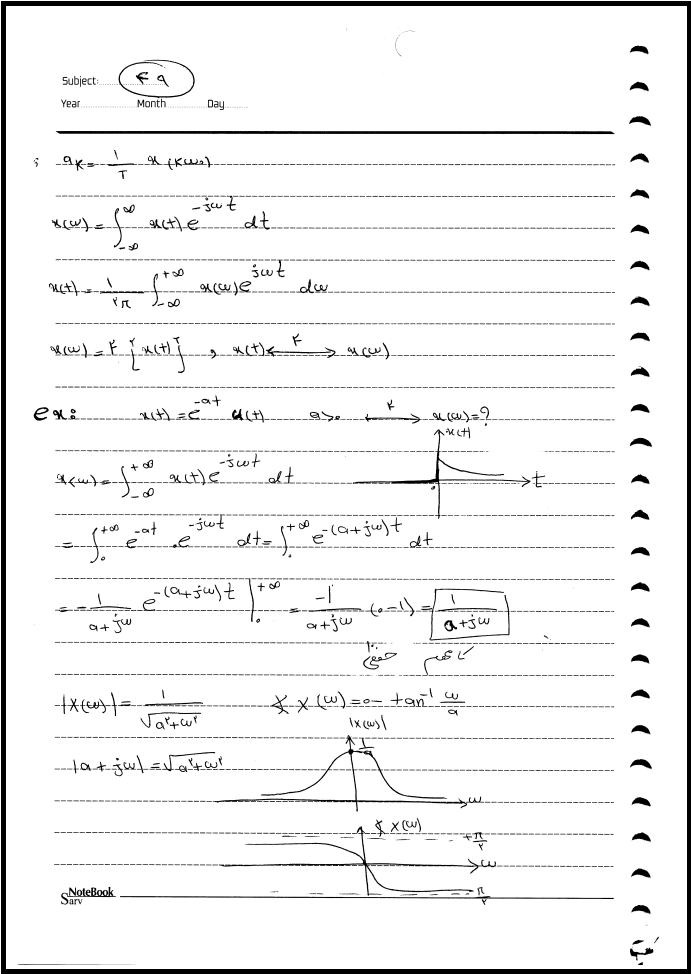 Subject: ۴۹
Year Month Day
; a_K = ۱/T x(Kω۰)
x(ω) = ∫_{-∞}^{∞} x(t) e^{-jωt} dt
x(t) = ۱/۲π ∫_{-∞}^{+∞} x(ω) e^{jωt} dω
x(ω) = F {x(t)} , x(t) ⟷^F x(ω)
ex: x(t) = e^{-at} u(t) a>۰ ⟷^F x(ω) = ?
x(t)
x(ω) = ∫_{-∞}^{+∞} x(t) e^{-jωt} dt
t
۰
= ∫_۰^{+∞} e^{-at} . e^{-jωt} dt = ∫_۰^{+∞} e^{-(a+jω)t} dt
= -۱/(a+jω) e^{-(a+jω)t} |_۰^{+∞} = -۱/(a+jω) (۰-۱) = ۱/(a+jω)
|X(ω)| = ۱/√(a²+ω²) ∡ X(ω) = ۰ - tan⁻¹ ω/a
|X(ω)|
|a + jω| = √(a²+ω²) ۱/a
ω
∡ X(ω) +π/۲
ω
π/۲
NoteBook
Sarv